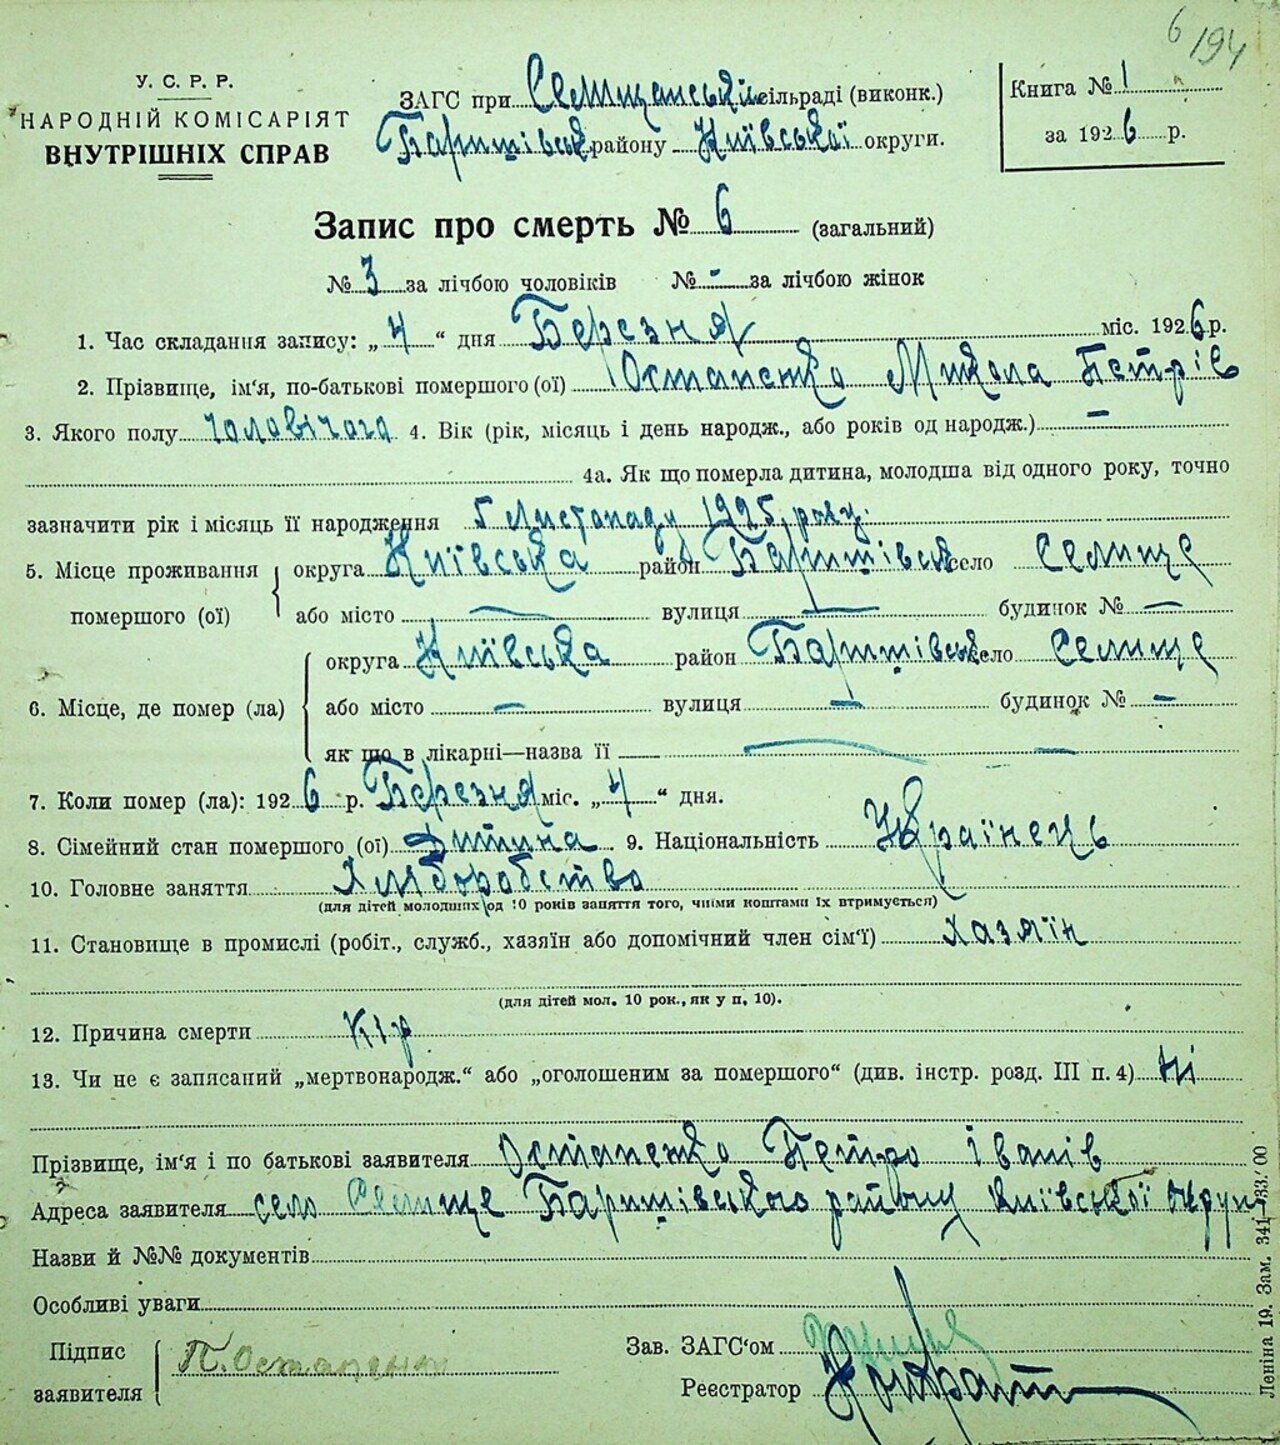 6 194
У. С. Р. Р.
НАРОДНІЙ КОМІСАРІЯТ
ВНУТРІШНІХ СПРАВ
ЗАГС при Селищанській сільраді (виконк.)
Баришівськ району Київської округи.
Книга № 1
за 1926 р.
Запис про смерть № 6 (загальний)
№ 3 за лічбою чоловіків № - за лічбою жінок
1. Час складання запису: „4“ дня Березня міс. 1926 р.
2. Прізвище, ім'я, по-батькові помершого (ої) Остапенко Микола Петрів
3. Якого полу чоловічого 4. Вік (рік, місяць і день народж., або років од народж.) —
4а. Як що померла дитина, молодша від одного року, точно
зазначити рік і місяць її народження 5 Листопаду 1925 року.
5. Місце проживання помершого (ої) округа Київська район Баришівськ село Селище
або місто — вулиця — будинок № —
6. Місце, де помер (ла) округа Київська район Баришівськ село Селище
або місто — вулиця — будинок № —
як що в лікарні—назва її — —
7. Коли помер (ла): 1926 р. Березня міс. „4“ дня.
8. Сімейний стан помершого (ої) Дитина 9. Національність Українець
10. Головне заняття Хліборобство
(для дітей молодших од 10 років заняття того, чиїми коштами їх втримується)
11. Становище в промислі (робіт., служб., хазяїн або допомічний член сім'ї) Хазяїн
(для дітей мол. 10 рок., як у п. 10).
12. Причина смерти Кір
13. Чи не є записаний „мертвонародж.“ або „оголошеним за помершого“ (див. інстр. розд. III п. 4) Ні
Прізвище, ім'я і по батькові заявителя Остапенко Петро Іванів
Адреса заявителя село Селище Баришівського району Київської округи
Назви й №№ документів
Особливі уваги
Підпис заявителя П. Остапенко
Зав. ЗАГС'ом
Реєстратор
Леніна 19. Зам. 341